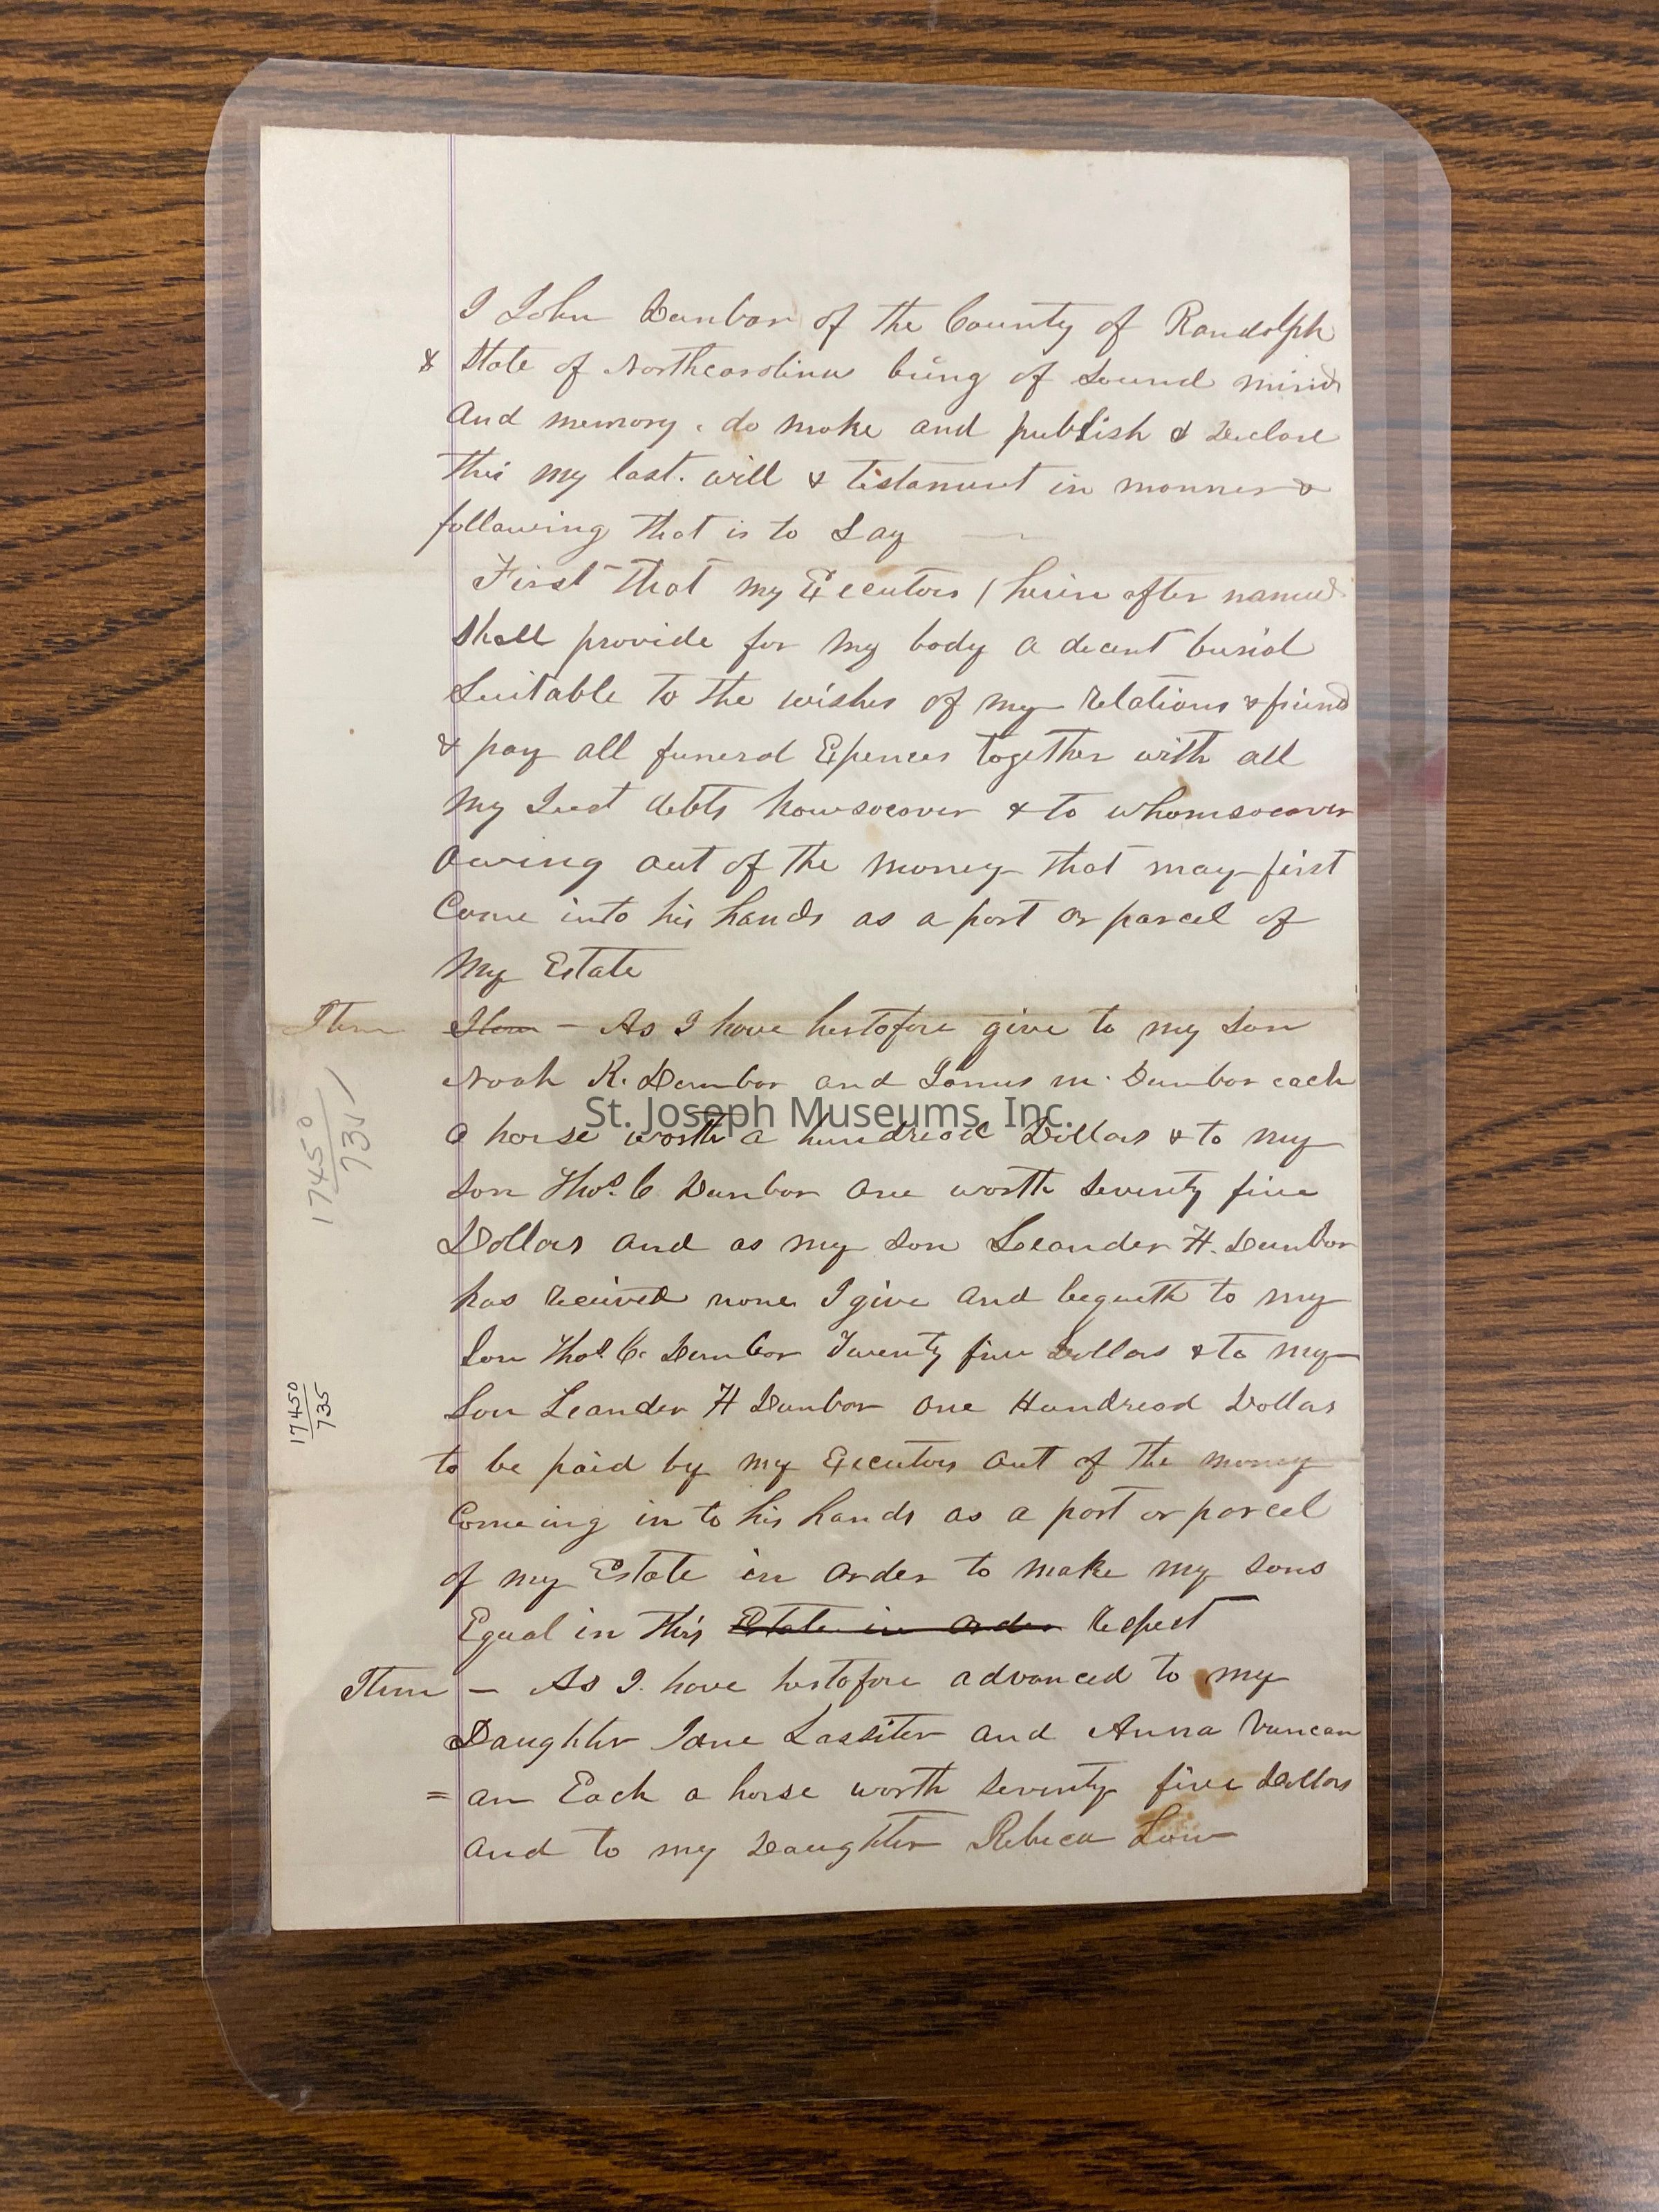 I John Dunbar of the County of Randolph
& State of Northcarolina being of Sound mind
And memory. do make and publish & Declare
this my last. will & testament in manner &
following that is to Say
First That my Executors ( herin after named
Shall provide for my body a decent burial
Suitable to the wishes of my relations & friend
& pay all funeral Epences together with all
my Just debts howsoeaver & to whomsoeaver
owing out of the money that may first
Come into his hands as a part or parcel of
my Estate
Item Item – As I have hertofore give to my Son
Noah R. Dunbar and James M. Dunbar each
A horse worth a hundread Dollars & to my
Son Thos. C. Dunbar one worth Seventy five
Dollars and as my Son Leander H. Dunbar
has received none I give and bequeth to my
Son Thos. C. Dunbar Twenty five Dollars & to my
Son Leander H Dunbar one Hundread Dollars
to be paid by my Executors out of the money
Comeing in to his hands as a part or parcel
of my Estate in order to make my Sons
Equal in this Estate in order Respect
Item – As I. have hertofore advanced to my
Daughter Jane Lassiter and Anna Vuncan
= an Each a horse worth Seventy five Dollars
And to my Daughter Rebeca Low
17450
735
17450
735
St. Joseph Museums, Inc.